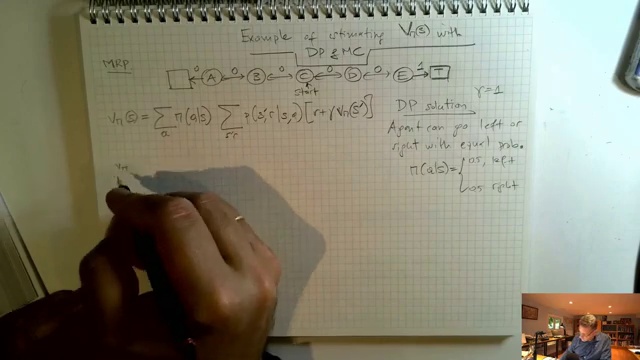 Example of estimating Vπ(s) with
DP & MC
MRP
0 0 0 0 0 1
A B C D E T
start
γ=1
Vπ(s) = ∑a π(a|s) ∑s'r p(s',r|s,a) [r+γVπ(s')]
DP solution
Agent can go left or
right with equal prob.
π(a|s)= { 0.5, left
0.5 right